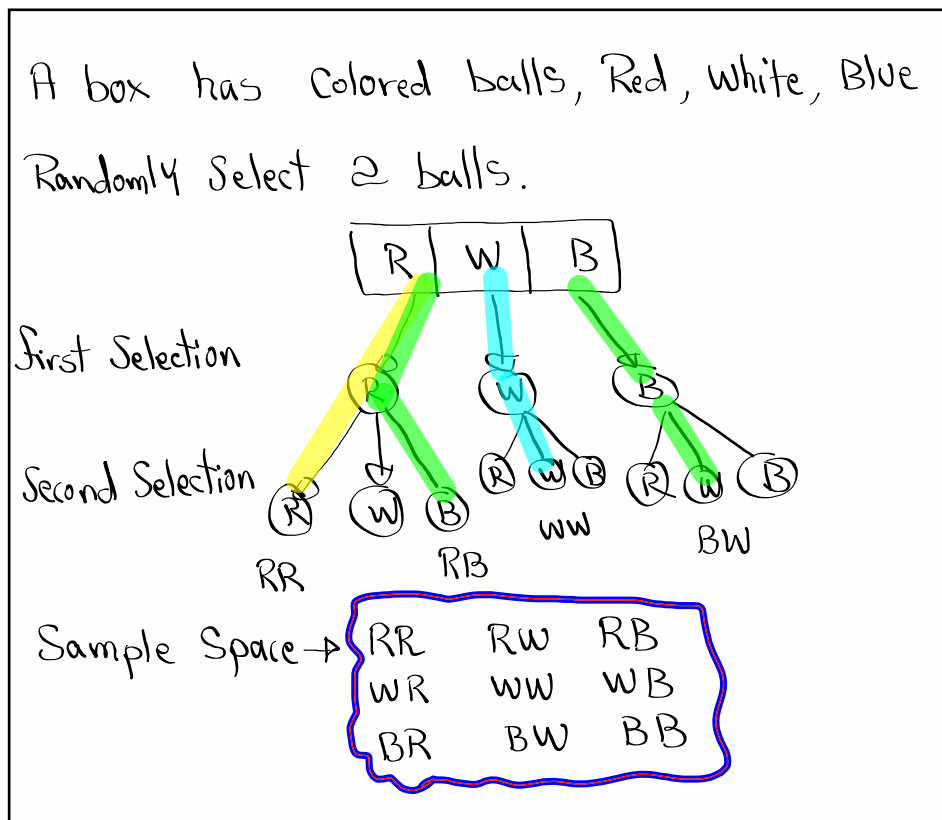 A box has Colored balls, Red, White, Blue
Randomly Select 2 balls.
R W B
First Selection
R W B
Second Selection
R W B R W B R W B
RR RB WW BW
Sample Space → RR RW RB
WR WW WB
BR BW BB